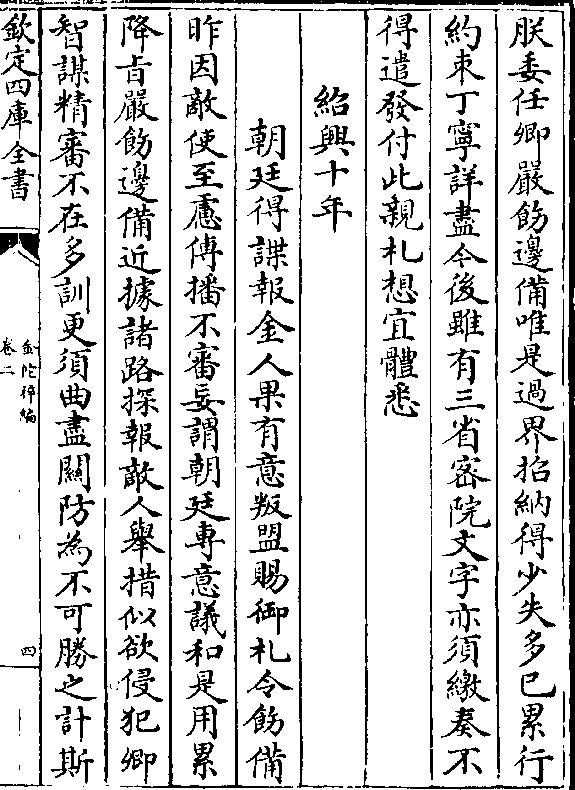 朕委任卿嚴飭邊備唯是過界招納得少失多已累行
約束丁寧詳盡今後雖有三省宻院文字亦須繳奏不
得遣發付此親札想宜體悉
紹興十年
朝廷得諜報金人果有意叛盟賜御札令飭備
昨因敵使至慮傳播不審妄謂朝廷専意議和是用累
降㫖嚴飭邊備近據諸路探報敵人舉措似欲侵犯卿
智謀精審不在多訓更須曲盡關防為不可勝之計斯
欽定四庫全書
金陀稡編
卷二
四